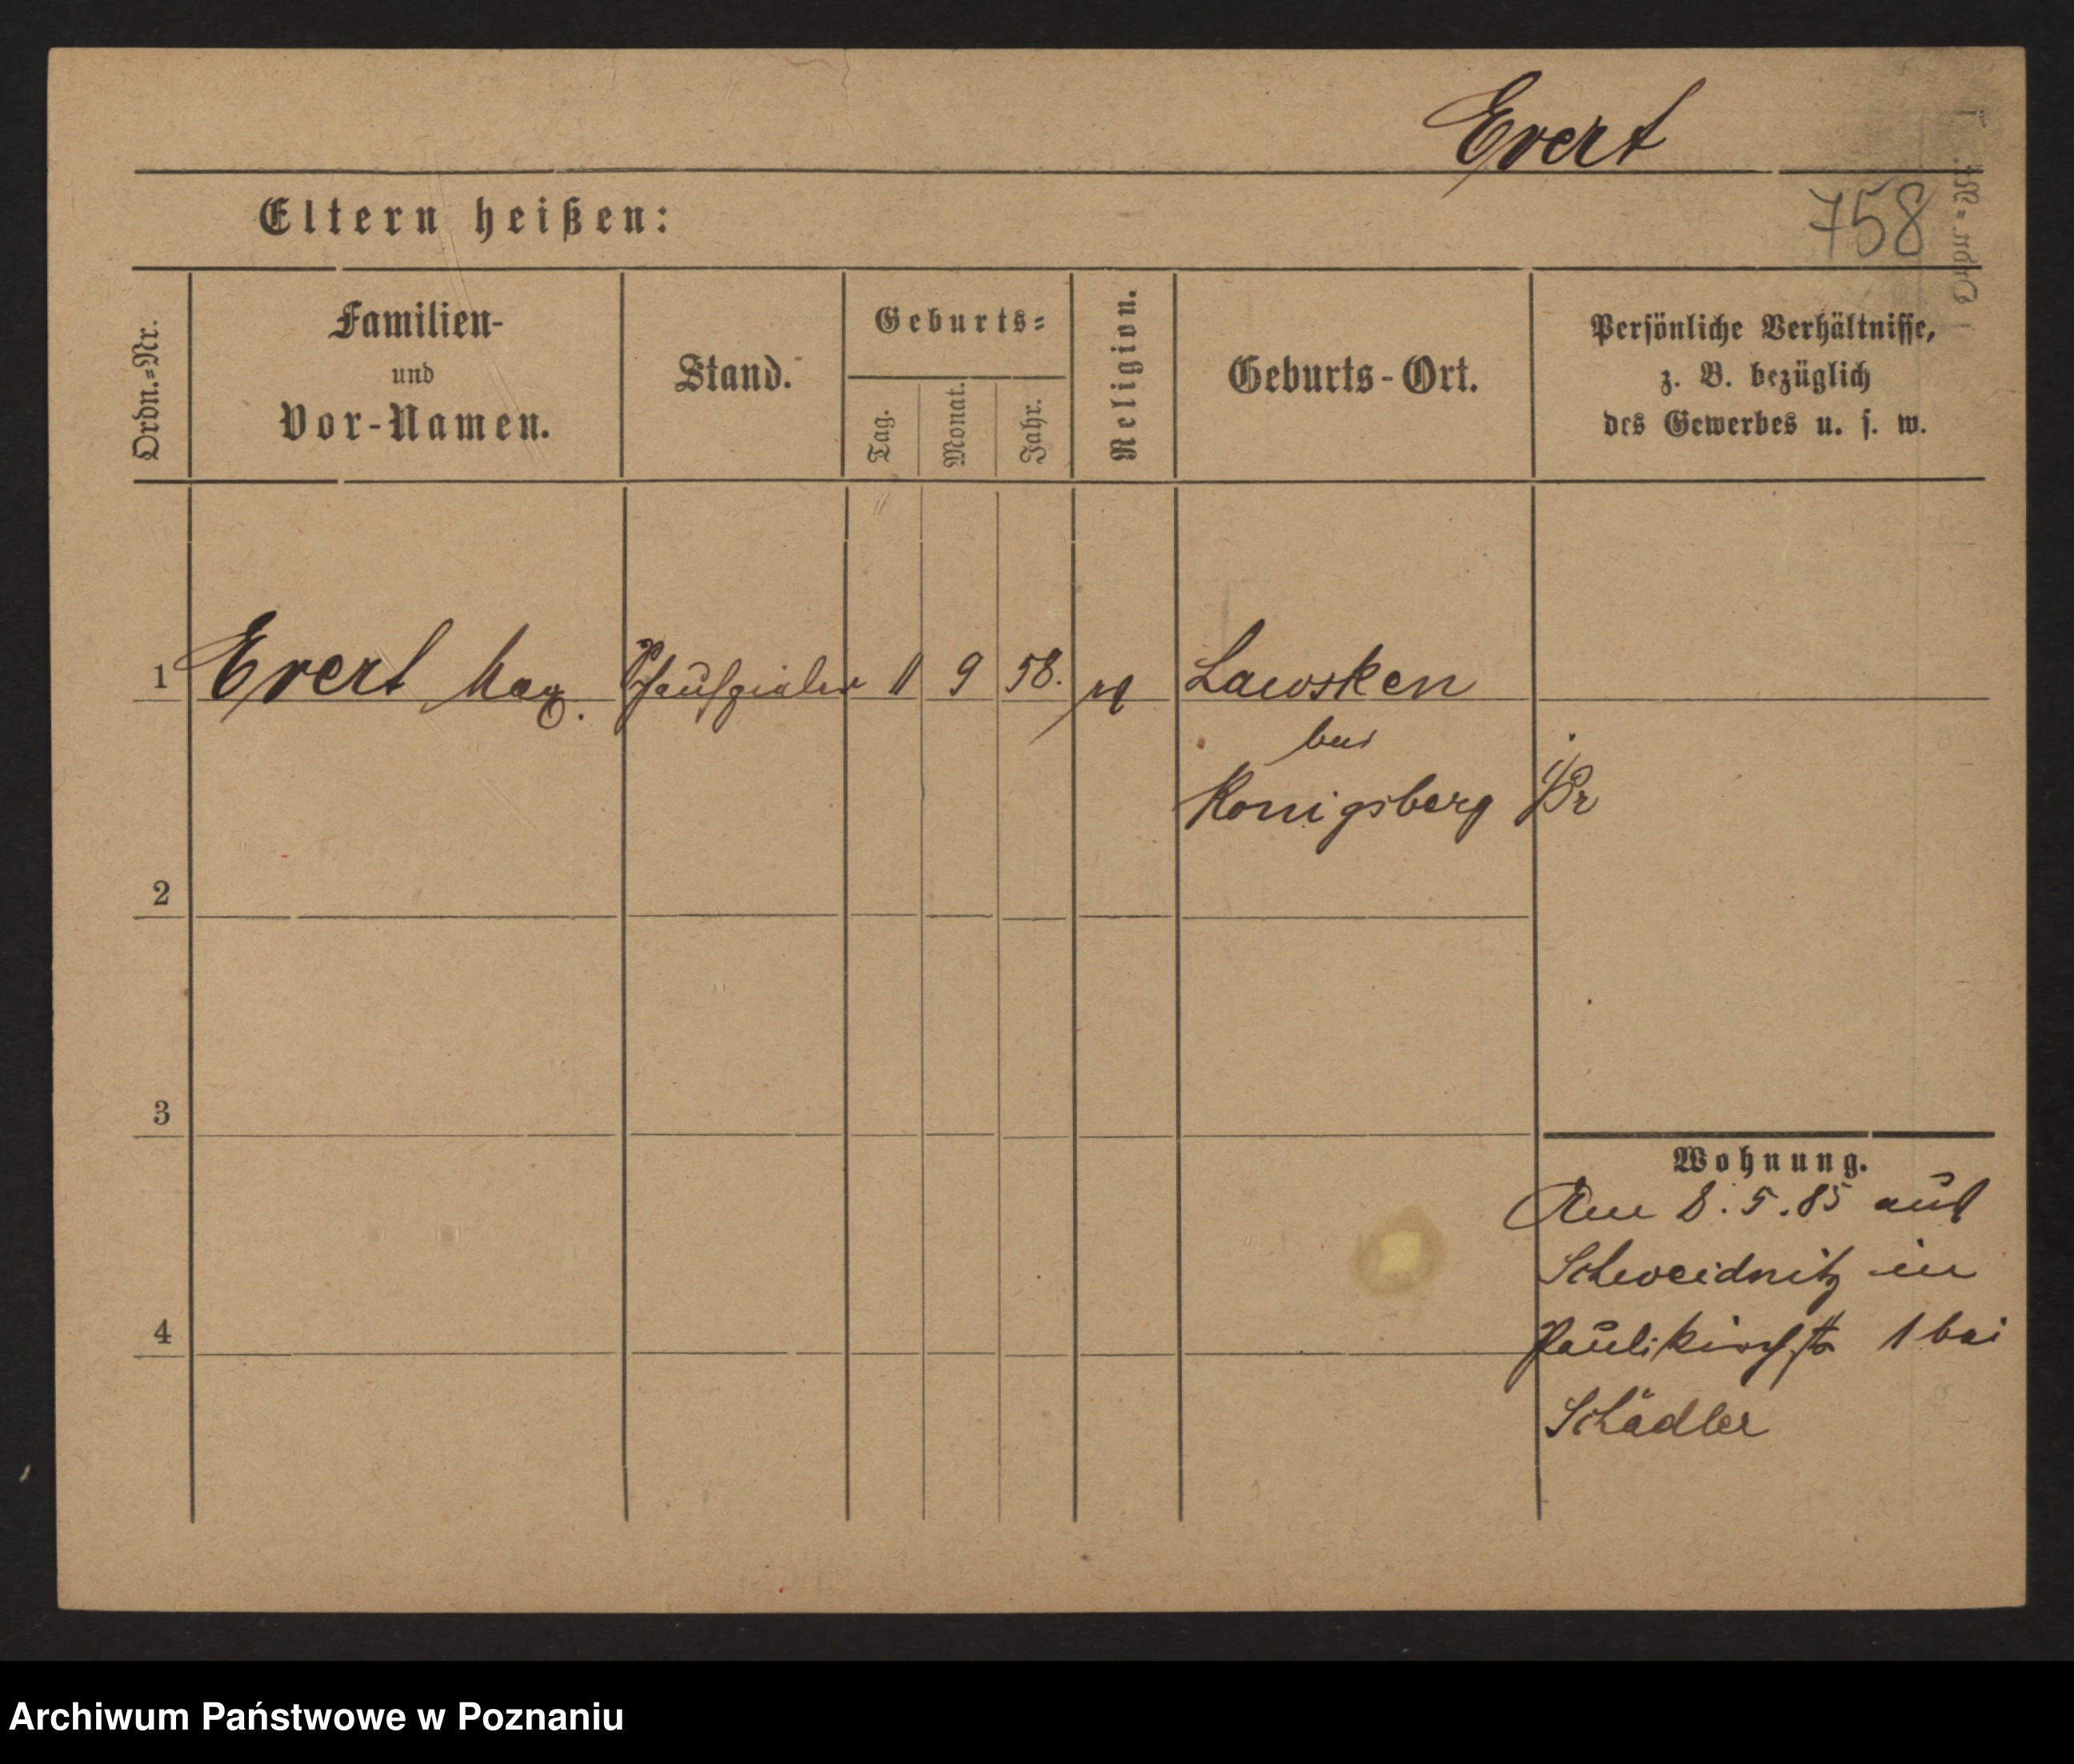 Evert
758
Eltern heißen:
Ordn.=Nr.
Familien-
und
Vor-Namen.
Stand.
Geburts=
Tag.
Monat.
Jahr.
Religion.
Geburts-Ort.
Persönliche Verhältnisse,
z. B. bezüglich
des Gewerbes u. s. w.
1 Evert Max. Schauspieler 11 9 58. Lawsken
bei
Königsberg i/Pr
2
3
Wohnung.
Am 8.5.85 aus
Schweidnitz in
4
Paulikirchstr 1 bei
Schädler
Archiwum Państwowe w Poznaniu